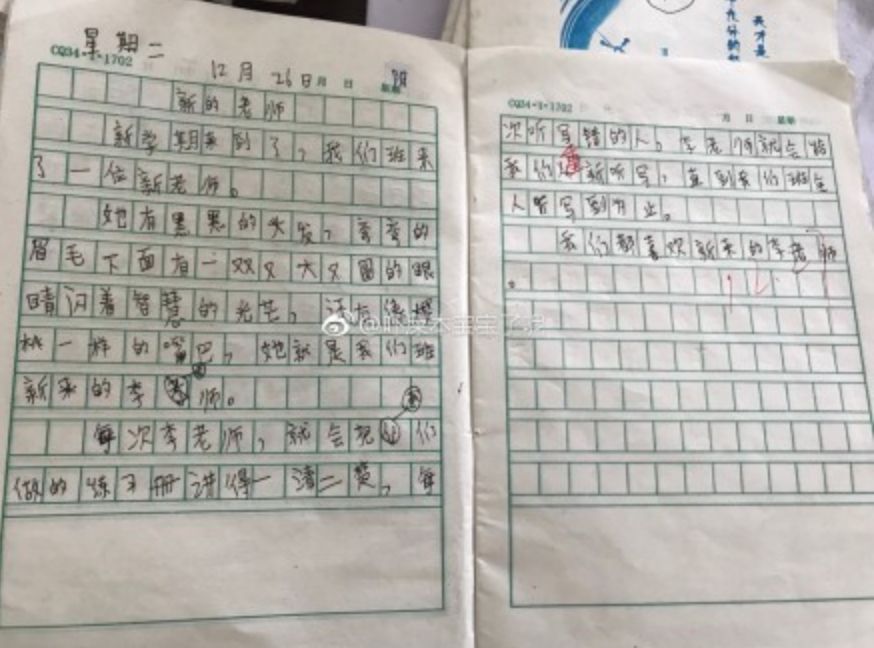 星期二
CQ34-1-1702
12月26日 月 日 星期 阴
新的老师
新学期来到了，我们班来
了一位新老师。
她有黑黑的头发，弯弯的
眉毛下面有一双又大又圆的眼
睛闪着智慧的光芒，还有像樱
桃一样的嘴巴，她就是我们班
新来的李老师。
每次李老师，就会把我们
做的练习册讲得一清二楚，每
CQ34-1-1702
月 日 星期
次听写错的人，李老师就会给
我们重新听写，直到我们班全
人听写到为止。
我们都喜欢新来的李老师
。
天才是
@